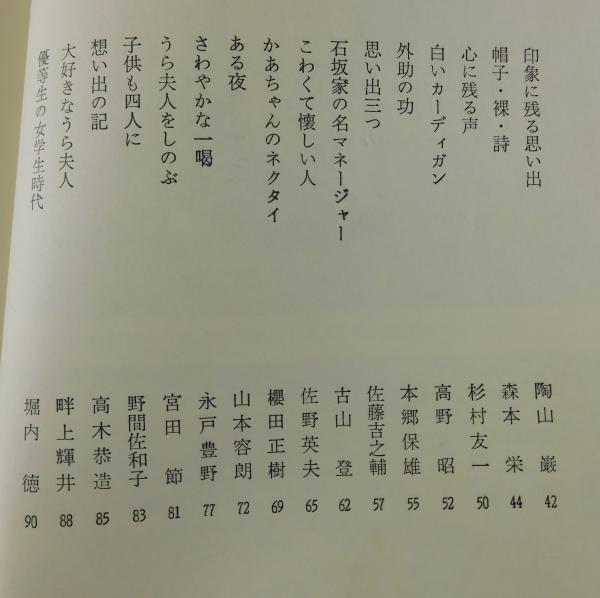 印象に残る思い出 陶山 巌 42
帽子・裸・詩 森本 栄 44
心に残る声 杉村友一 50
白いカーディガン 高野 昭 52
外助の功 本郷保雄 55
思い出三つ 佐藤吉之輔 57
石坂家の名マネージャー 古山 登 62
こわくて懐しい人 佐野英夫 65
かあちゃんのネクタイ 櫻田正樹 69
ある夜 山本容朗 72
さわやかな一喝 永戸豊野 77
うら夫人をしのぶ 宮田 節 81
子供も四人に 野間佐和子 83
想い出の記 高木恭造 85
大好きなうら夫人 畔上輝井 88
優等生の女学生時代 堀内 徳 90